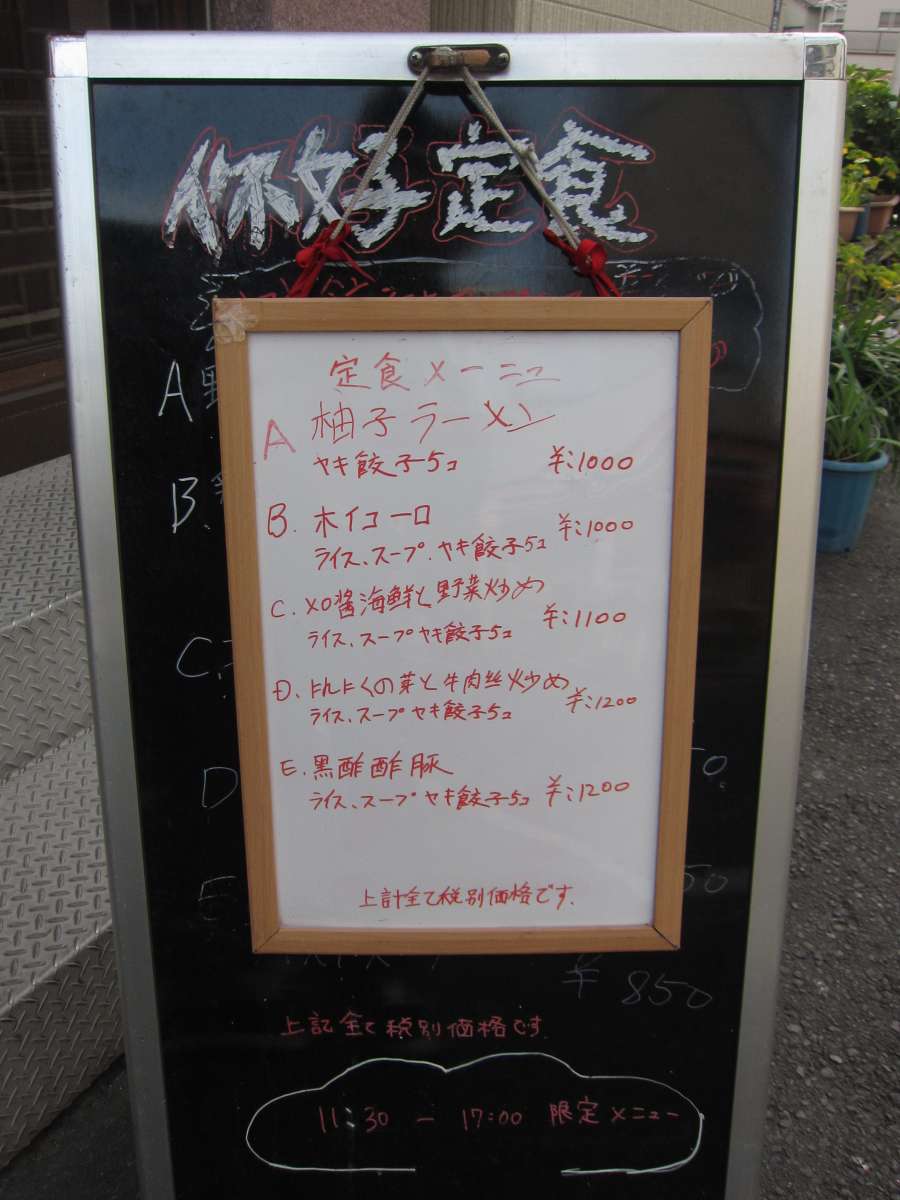 你好定食
定食メーニュ
A 柚子ラーメン
ヤキ餃子5コ ¥:1000
B. ホイコーロ
ライス、スープ.ヤキ餃子5コ ¥:1000
C. XO醤海鮮と野菜炒め
ライス、スープヤキ餃子5コ ¥:1100
D. にんにくの芽と牛肉丝炒め
ライス、スープヤキ餃子5コ ¥:1200
E. 黒酢酢豚
ライス、スープヤキ餃子5コ ¥:1200
上計全て税別価格です.
A
B.
C
D
E
¥ 850
上記全て税別価格です
11:30 ー 17:00 限定メニュー